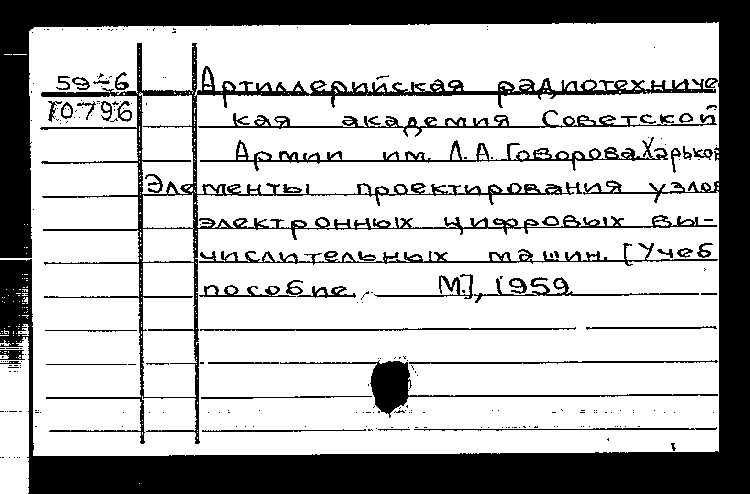 59-6 Артиллерийская радиотехниче
10796 кая академия Советской
Армии им. Л.А. Говорова. Харьков
Элементы проектирования узлов
электронных цифровых вы-
числительных машин. [Учеб
пособие. М.], 1959